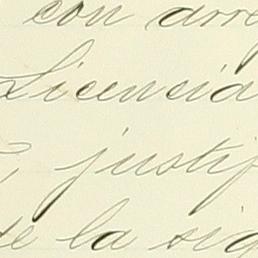 con arre
Licencia
justif
de la sig